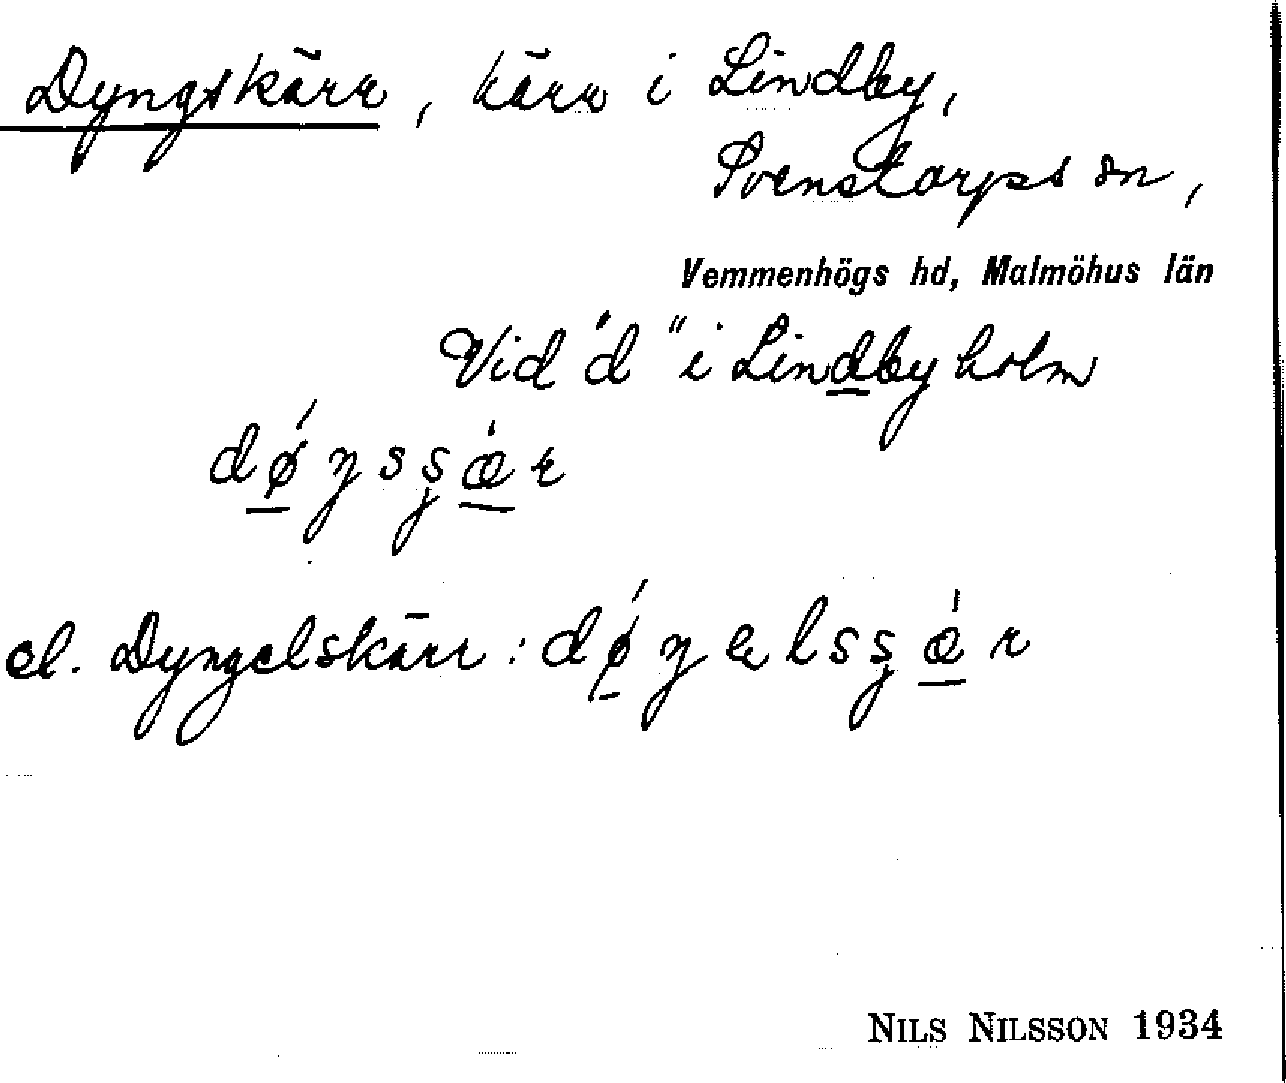 Dyngskärr, kärr i Lindby,
Svenstorps sn,
Vemmenhögs hd, Malmöhus län
Vid "d" i Lindbyholm
dǿ̲ŋsʂǽ̲r
el. Dyngelskärr: dǿ̲ŋəlsʂǽ̲r
NILS NILSSON 1934